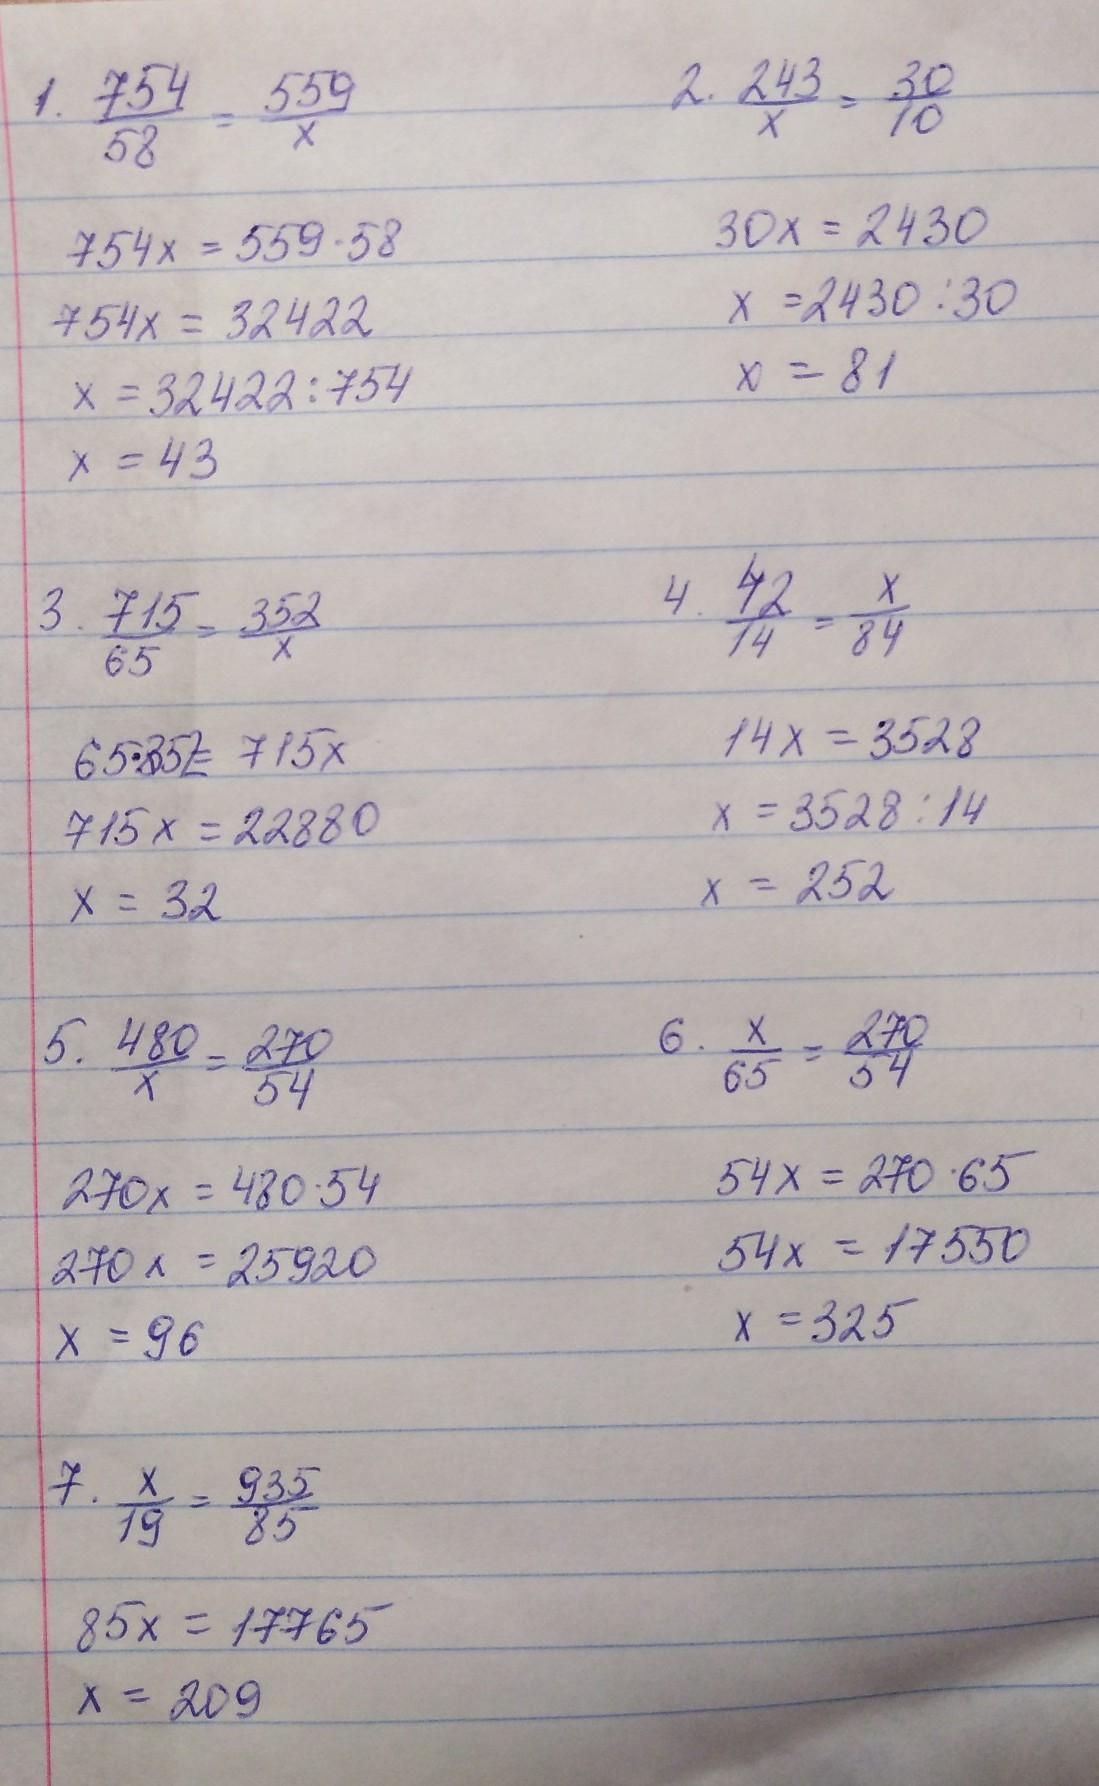 1. 754/58 = 559/x
754x = 559·58
754x = 32422
x = 32422:754
x = 43
2. 243/x = 30/10
30x = 2430
x = 2430:30
x = 81
3. 715/65 = 352/x
65·352 = 715x
715x = 22880
x = 32
4. 42/14 = x/84
14x = 3528
x = 3528:14
x = 252
5. 480/x = 270/54
270x = 480·54
270x = 25920
x = 96
6. x/65 = 270/54
54x = 270·65
54x = 17550
x = 325
7. x/19 = 935/85
85x = 17765
x = 209